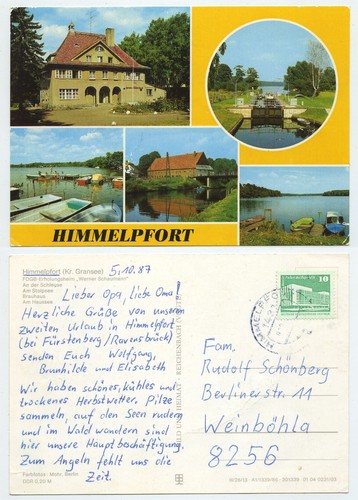 HIMMELPFORT
Himmelpfort (Kr. Gransee)
5.10.87
FDGB-Erholungsheim "Werner Schaumann"
An der Schleuse
Am Stolpsee
Brauhaus
Am Haussee
Lieber Opa, liebe Oma!
Herzliche Grüße von unserem
zweiten Urlaub in Himmelpfort
(bei Fürstenberg/Ravensbrück)
senden Euch Wolfgang,
Brunhilde und Elisabeth
Wir haben schönes, kühles und
trockenes Herbstwetter. Pilze
sammeln, auf den Seen rudern
und im Wald wandern sind
hier unsere Hauptbeschäftigung.
Zum Angeln fehlt uns die
Zeit.
Farbfotos: Mohr, Berlin
BILD UND HEIMAT REICHENBACH
HIMMELPFO
DDR
10
Fam.
Rudolf Schönberg
Berlinerstr. 11
Weinböhla
8256